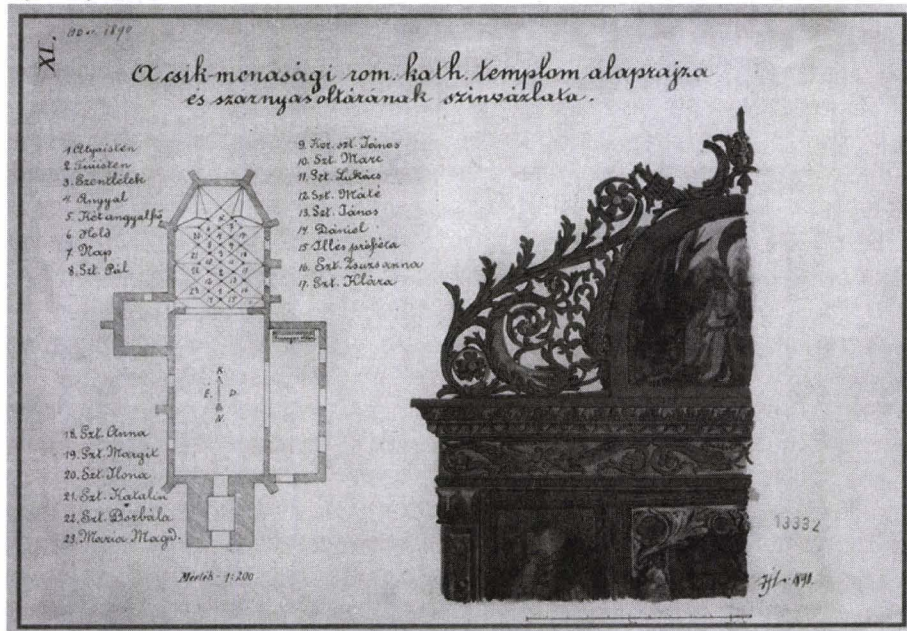 XL.
1890
A csik-menasági rom. kath. templom alaprajza
és szárnyasoltárának színvázlata.
1 Atyaisten
2 Fiúisten
3. Szentlélek
4. Angyal
5. Két angyalfő
6. Hold
7. Nap
8. Szt. Pál
9. Ker. szt. János
10. Szt. Márc
11. Szt. Lukács
12. Szt. Máté
13. Szt. János
14 Dániel
15 Illés próféta
16. Szt. Zsuzsanna
17. Szt. Klára
K
É. D.
N.
18. Szt. Anna
19. Szt. Margit
20. Szt. Ilona
21. Szt. Katalin
22. Szt. Borbála
23. Mária Magd.
Mérték - 1:200
13332